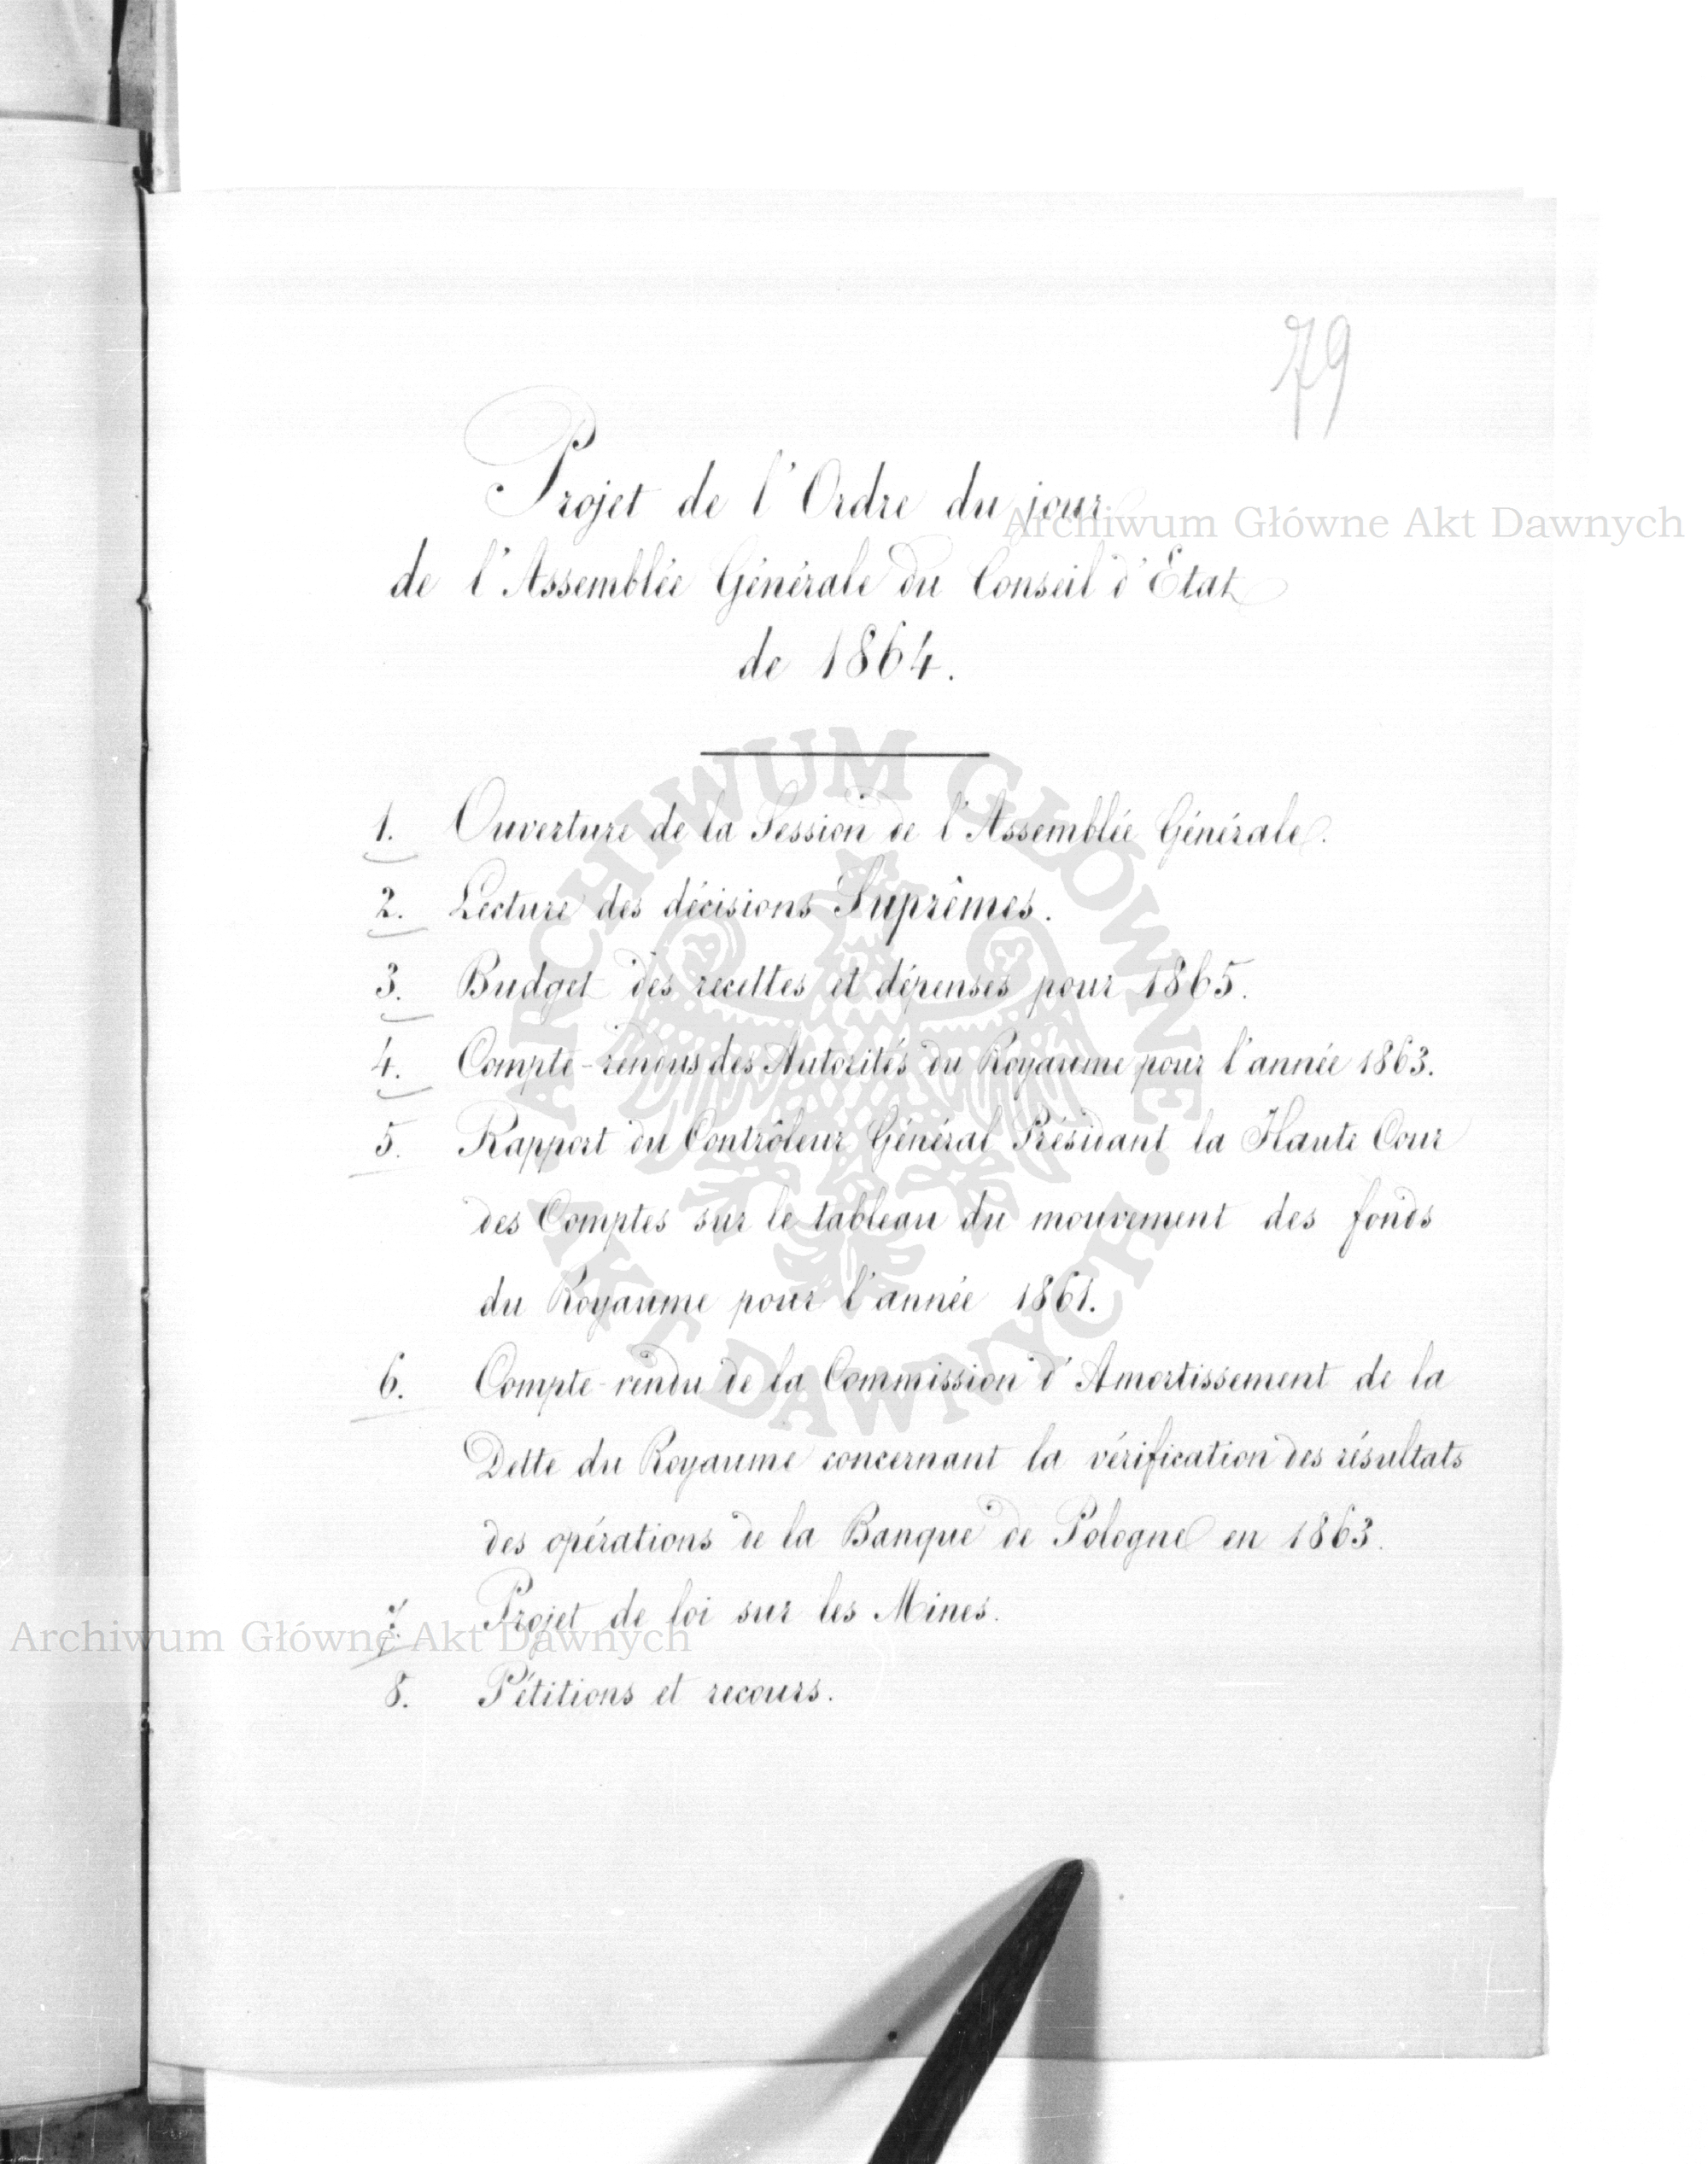 79
Projet de l'Ordre du jour
de l'Assemblée Générale du Conseil d'Etat
de 1864.
1. Ouverture de la Session de l'Assemblée Générale.
2. Lecture des décisions Suprêmes.
3. Budget des recettes et dépenses pour 1865.
4. Compte-rendus des Autorités du Royaume pour l'année 1863.
5. Rapport du Contrôleur Général Présidant la Haute Cour
des Comptes sur le tableau du mouvement des fonds
du Royaume pour l'année 1861.
6. Compte-rendu de la Commission d'Amortissement de la
Dette du Royaume concernant la vérification des résultats
des opérations de la Banque de Pologne en 1863.
7. Projet de loi sur les Mines.
8. Pétitions et recours.
Archiwum Główne Akt Dawnych
ARCHIWUM GŁÓWNE AKT DAWNYCH
Archiwum Główne Akt Dawnych